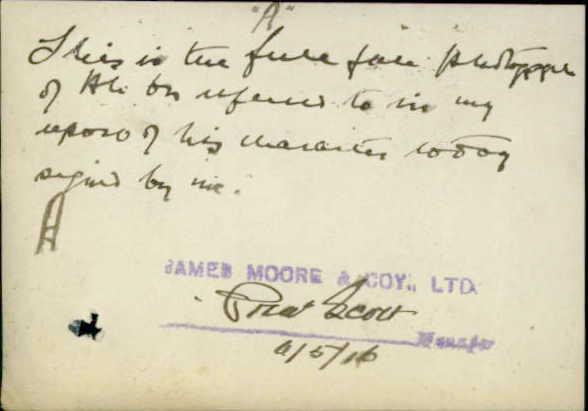 "A"
This is the full face photograph
of Ah On referred to in my
report of his character today
signed by me.
A
JAMES MOORE & COY., LTD.
Scott
Manager
6/5/16